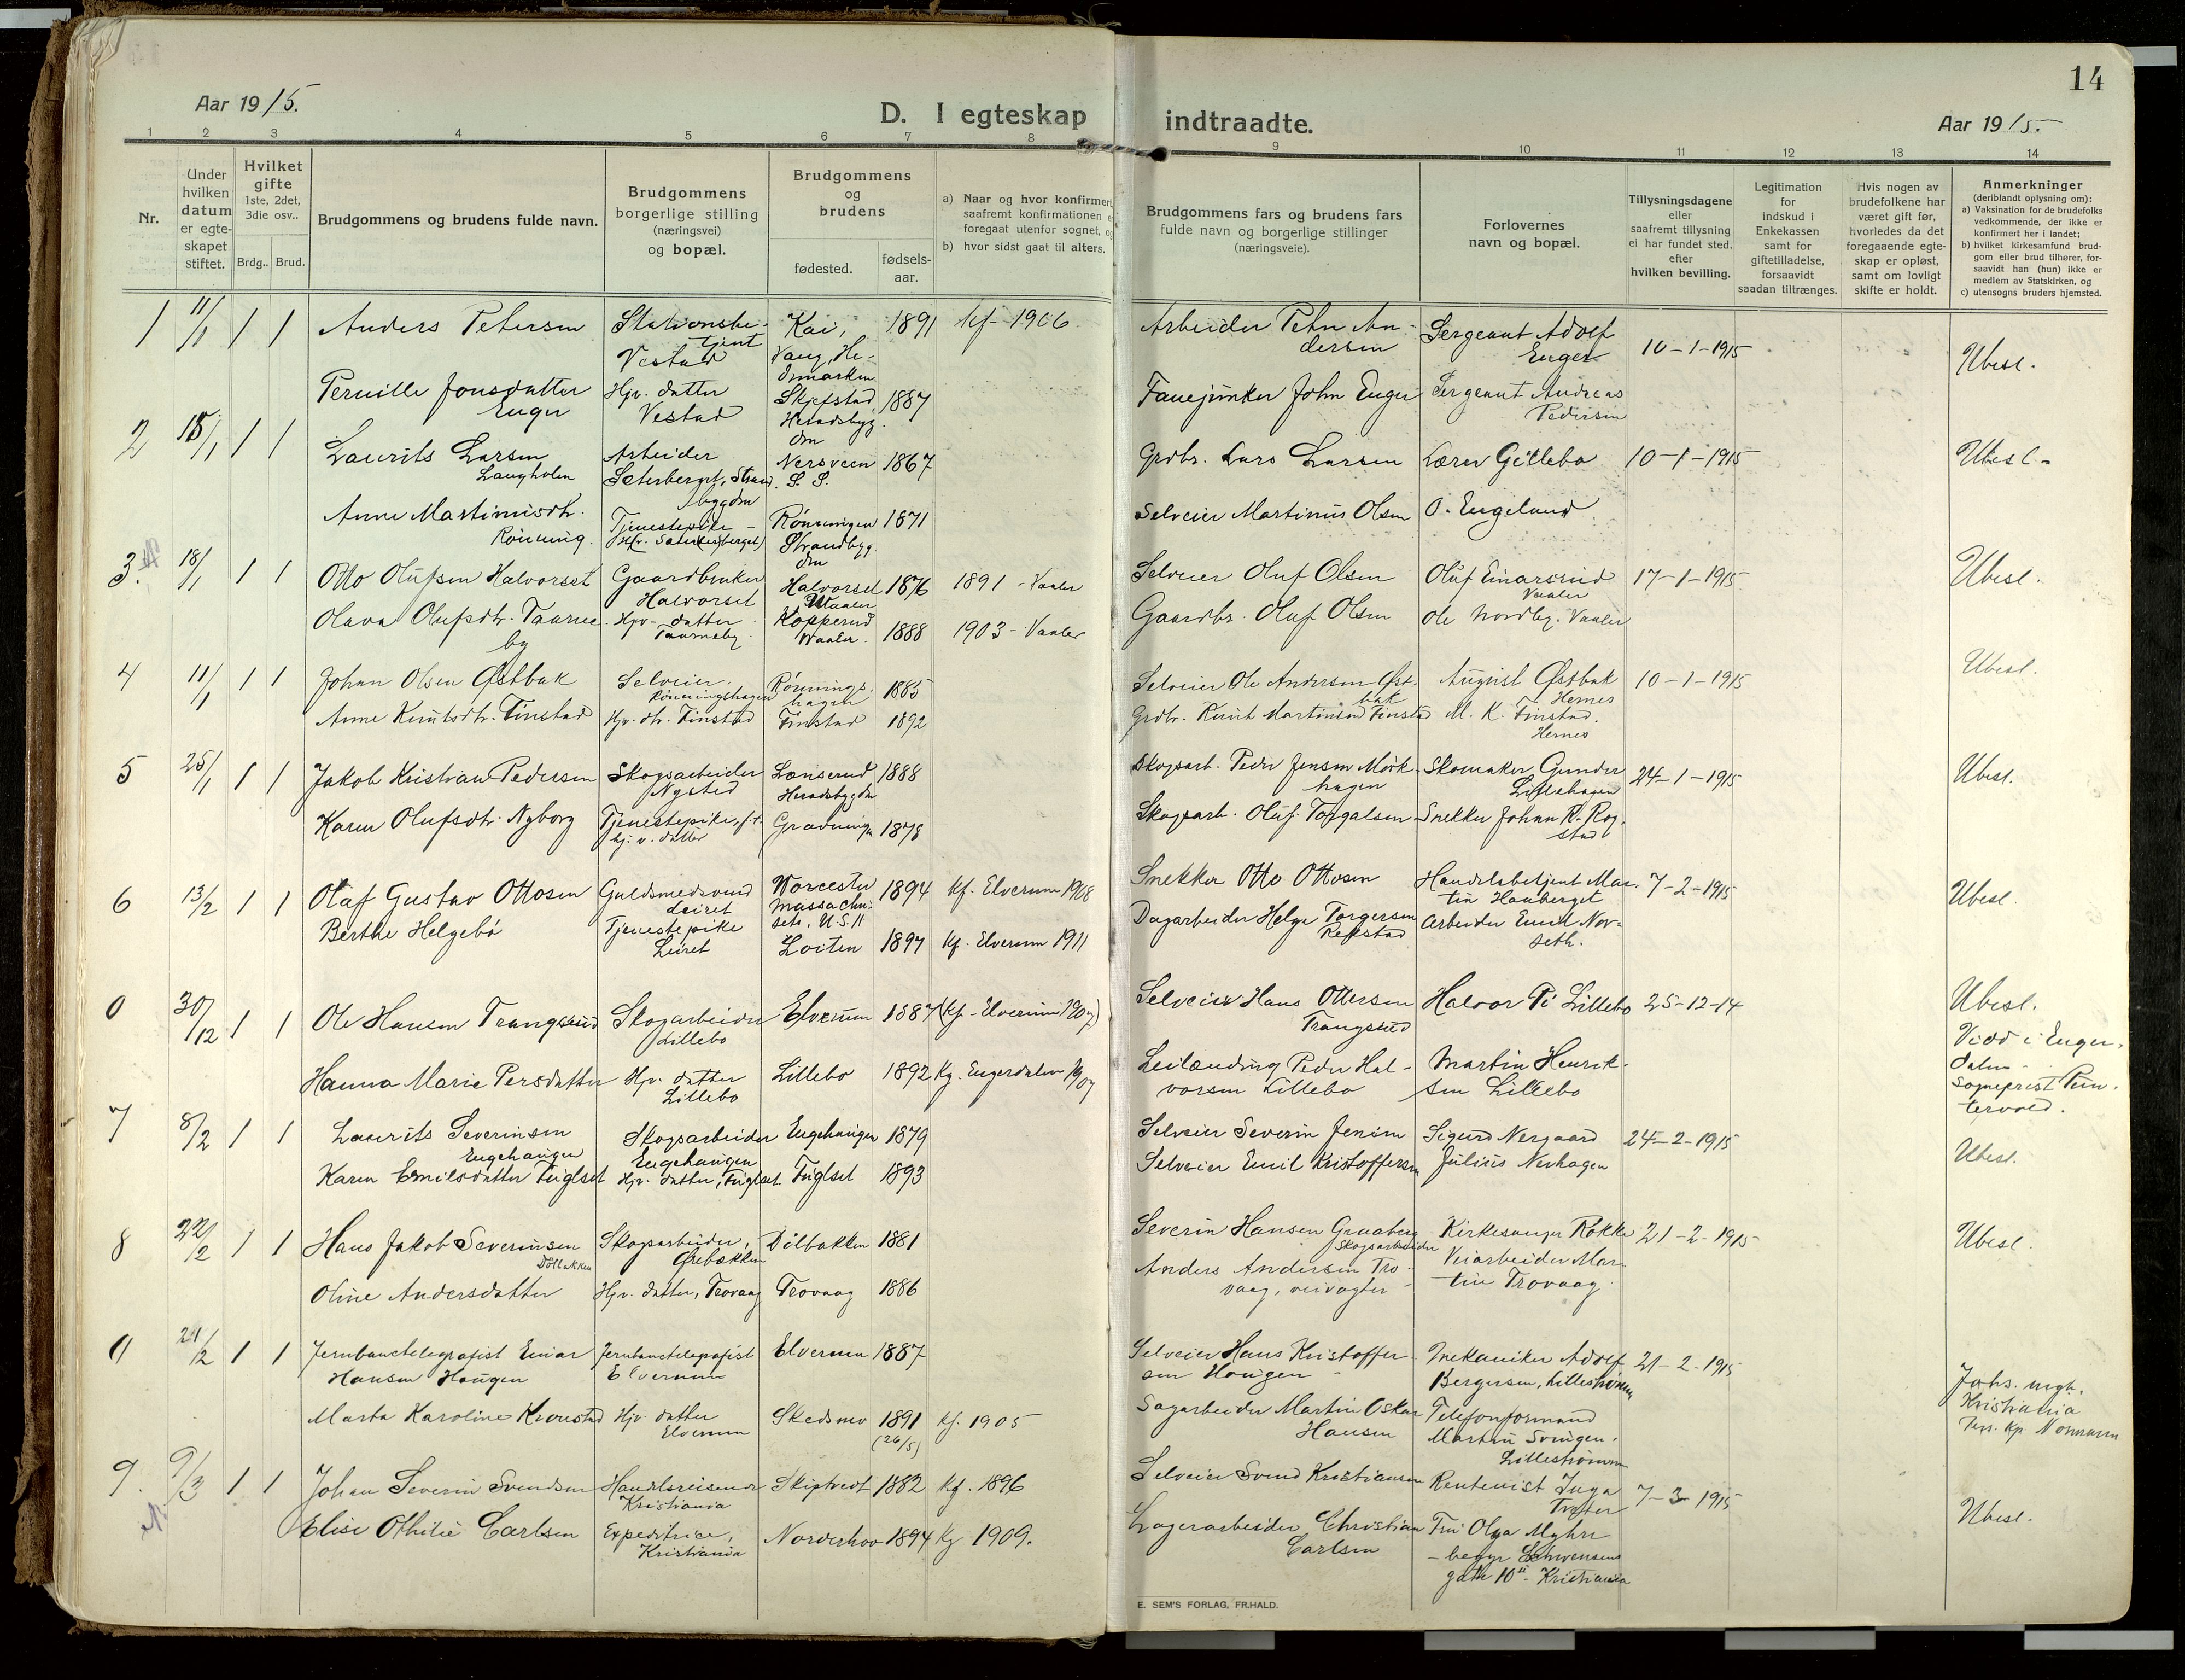 14
Aar 1915.
D. I egteskap indtraadte.
Aar 1915.
1 2 3 4 5 6 7 8 9 10 11 12 13 14
Nr.
Under hvilken datum er egteskapet stiftet.
Hvilket gifte 1ste, 2det, 3die osv..
Brdg.. Brud.
Brudgommens og brudens fulde navn.
Brudgommens borgerlige stilling (næringsvei) og bopæl.
Brudgommens og brudens
fødested.
fødsels-aar.
a) Naar og hvor konfirmert,
saafremt konfirmationen er
foregaat utenfor sognet, og
b) hvor sidst gaat til alters.
Brudgommens fars og brudens fars
fulde navn og borgerlige stillinger
(næringsveie).
Forlovernes
navn og bopæl.
Tillysningsdagene
eller
saafremt tillysning
ei har fundet sted,
efter
hvilken bevilling.
Legitimation
for
indskud i
Enkekassen
samt for
giftetilladelse,
forsaavidt
saadan tiltrænges.
Hvis nogen av
brudefolkene har
været gift før,
hvorledes da det
foregaaende egte-
skap er opløst,
samt om lovligt
skifte er holdt.
Anmerkninger
(deriblandt oplysning om):
a) Vaksination for de brudefolks
vedkommende, der ikke er
konfirmert her i landet;
b) hvilket kirkesamfund brud-
gom eller brud tilhører, for-
saavidt han (hun) ikke er
medlem av Statskirken, og
c) utensogns bruders hjemsted.
1 11/1 1 1 Anders Petersen Stationsbe-tjent Vestad Kai, Vang, He-dmarken 1891 kf- 1906 Arbeider Peter An-dersen Sergeant Adolf Enger 10-1-1915 Ubesl.
Pernille Jonsdatter Enger Hjv. datter Vestad Skjefstad Heradsbyg-den 1887 Fanejunker John Enger Sergeant Andreas Pedersen
2 18/1 1 1 Laurits Larsen Langholen Arbeider Seterberget, Strandbygden Nersveen S. S. 1867 Grdbr. Lars Larsen Lærer Gillebo 10-1-1915 Ubesl-
Anne Martinusdtr. Rönning. Tjenestepike - Rönningen Strandbyg-den 1871 Selveier Martinus Olsen O. Engeland
3. 18/1 1 1 Otto Olufsen Halvorset Gaardbruker Halvorset Halvorset Vaaler 1876 1891 - Vaaler Selveier Oluf Olsen Oluf Einarsrud Vaaler 17-1-1915 Ubesl.
Olava Olufsdtr. Taarneby Hjv- datter Taarneby. Kopperud Vaaler. 1888 1903 - Vaaler Gaardbr. Oluf Olsen Ole Nordby. Vaaler
4 11/1 1 1 Johan Olsen Østbak Selveier. Rönningshagen Rönnings-hagen 1885 Selveier Ole Andersen Øst-bak August Østbak Hernes 10-1-1915 Ubesl.
Anne Knutsdtr. Finstad Hjv. dtr. Finstad Finstad 1892 Grdbr. Knut Martinsen Finstad M. K. Finstad. Hernes
5 25/1 1 1 Jakob Kristian Pedersen Skogsarbeider Nysted Lønserud Heradsbygden 1888 Skogsarb. Peder Jensen Mörk-hagen Skomaker Gunder Lillehagen 24-1-1915 Ubesl.
Karen Olufsdtr. Nyborg Tjenestepike, f.t. hj. v. datter 1878 Skogsarb. Oluf Torgalsen Snekker Johan R. Rog-stad
6 13/2 1 1 Olaf Gustav Ottosen Guldsmedsvend Leiret Worcester Massachu-sets, U.S.A 1894 kf. Elverum 1908 Snekker Otto Ottosen Handelsbetjent Mar-tin Hauberget 7-2-1915 Ubesl.
Berthe Helgebö Tjenestepike Leiret Loiten 1897 kf. Elverum 1911 Dagarbeider Helge Torgersen Refstad Arbeider Emil Nor-seth.
0 30/12 1 1 Ole Hansen Trangsrud Skogarbeider Lillebo Elverum 1887 (kf - Elverum 1907) Selveier Hans Ottersen Trangsrud Halvor P. Lillebo 25-12-14 Ubesl.
Viad i Enger-dalen - sogneprest
Hanna Marie Persdatter Hjv. datter Lillebo Lillebo 1892 kf. Engerdalen 1907 Leilænding Peder Hal-vorsen Lillebo Martin Henrik-sen Lillebo
7 8/2 1 1 Laurits Severinsen Engehaugen Skogsarbeider Engehaugen Engehaugen 1879 Selveier Severin Jensen Sigurd Nergaard 24-2-1915 Ubesl.
Karen Emilsdatter Fuglset Hjv. datter, Fuglset Fuglset 1893 Selveier Emil Kristoffersen Julius Nerhagen
8 22/2 1 1 Hans Jakob Severinsen Dölbakken Skogsarbeider, Ørebækken Dölbakken 1881 Severin Hansen Graaberg Skogsarbeider Kirkesanger Rokke 21-2-1915 Ubesl.
Oline Andersdatter Hjv. datter, Trovaag Trovaag 1886 Anders Andersen Tro-vaag, veivogter - Veiarbeider Mar-tin Trovaag
0 21/2 1 1 Jernbanetelegrafist Einar Hansen Haugen Jernbanetelegrafist Elverum Elverum 1887 Selveier Hans Kristoffer-sen Haugen - Mekaniker Adolf Bergersen, Lillestrømmen 21-2-1915 Johs. mgh. Kristiania
Marta Karoline Kronstad Hjv. datter Elverum Skedsmo 1891 (26/5) kf. 1905 Sagarbeider Martin Oskar Hansen Telefonformand Martin Svingen. Lillestrømmen
9. 9/3 1 1 Johan Severin Svendsen Handelsreisende Kristiania Skiptvedt 1882 kf. 1896 Selveier Svend Kristiansen Rentenist Inga 7-3-1915 Ubesl.
Elise Othilie Carlsen Expeditrice, Kristiania Norderhov 1894 kf 1909. Lagerarbeider Christian Carlsen Fru Olga Myhre - begge Schwensens gate 10 - Kristiania
E. SEM'S FORLAG, FR.HALD.